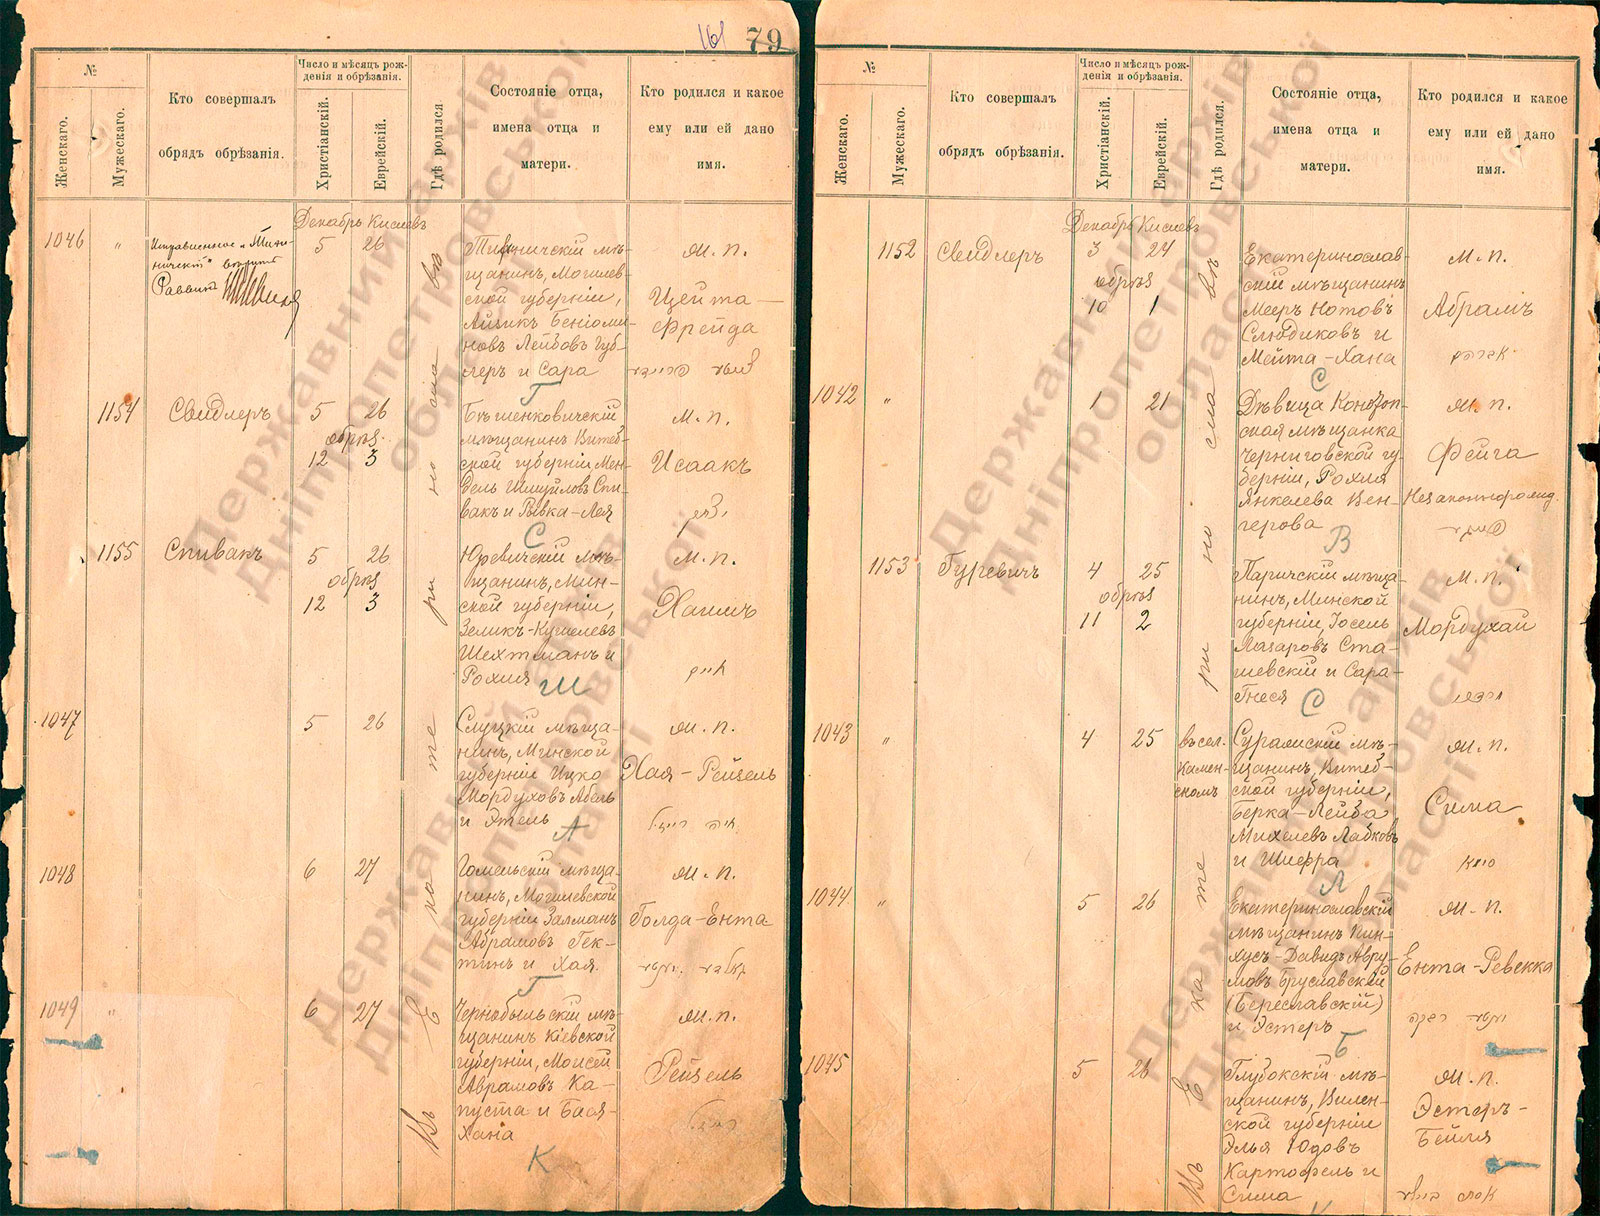 161 79
№
Женскаго.
Мужескаго.
Кто совершалъ
обрядъ обрѣзанія.
Число и мѣсяцъ рож-
денія и обрѣзанія.
Христіанскій.
Еврейскій.
Гдѣ родился
Состояніе отца,
имена отца и
матери.
Кто родился и какое
ему или ей дано
имя.
Декабрь Кислевъ
1046 " 5 26
Раввинъ
щанинъ, Могилев-
ской губерніи,
Айзикъ Беніоми-
новъ Лейбовъ Губ-
леръ и Сара
Г
Ж. п.
Цейта-
Фрейда
1154 Свидлеръ 5 26
обрѣз.
12 3
Бѣшенковичскій
мѣщанинъ Витеб-
ской губерніи Мен-
дель Шмуйловъ Спи-
вакъ и Рывка-Лея
С
М. п.
Исаакъ
יצחק
1155 Спивакъ 5 26
обрѣз
12 3
Юревичскій мѣ-
щанинъ, Мин-
ской губерніи,
Зеликъ-Кушелевъ
Шехтманъ и
Рохля
Ш
М. п.
Хаимъ
חיים
1047 5 26
Слуцкій мѣща-
нинъ, Минской
губерніи Ицко
Мордуховъ Абель
и Этель
А
Ж. п.
Хая-Рейзель
חיה רייזל
1048 6 27
Гомельскій мѣща-
нинъ, Могилевской
губерніи Залманъ
Абрамовъ Гек-
тинъ и Хая.
Г
Ж. п.
Голда-Ента
1049 " 6 27
Чернобыльскій мѣ-
щанинъ Кіевской
губерніи, Моисей
Аврамовъ Ка-
пуста и Бася-
Хана
К
Ж. п.
Рейзель
רייזל
Въ Екатеринославѣ
№
Женскаго.
Мужескаго.
Кто совершалъ
обрядъ обрѣзанія.
Число и мѣсяцъ рож-
денія и обрѣзанія.
Христіанскій.
Еврейскій.
Гдѣ родился.
Состояніе отца,
имена отца и
матери.
Кто родился и какое
ему или ей дано
имя.
Декабрь Кислевъ
1152 Свидлеръ 3 24
обрѣз
10 1
Екатеринослав-
скій мѣщанинъ
Мееръ Нотовъ
Слюдиковъ и
Мейта-Хана
С
М. п.
Абрамъ
אברהם
1042 " 1 21
Дѣвица Конотоп-
ская мѣщанка
Черниговской гу-
берніи, Рохля
Янкелева Вен-
герова
В
Ж. п.
Фейга
Незаконнорожд.
פייגע
1153 Гуревичъ 4 25
обрѣз
11 2
Паричскій мѣща-
нинъ, Минской
губерніи, Іосель
Лазаровъ Ста-
шевскій и Сара-
Гнеся
С
М. п.
Мордухай
מרדכי
1043 " 4 25
въ сел.
Камен-
скомъ
щанинъ, Витеб-
ской губерніи,
Берка-Лейба
Михелевъ Лабковъ
и Шифра
Л
Ж. п.
Сима
סימא
1044 " 5 26
Екатеринославскій
мѣщанинъ Пин-
хусъ-Давидъ Авру-
мовъ Бруславскій
(Береславскій)
и Эстеръ
Б
Ж. п.
Ента-Ревекка
יענטע רבקה
1045 5 26
Глубокскій мѣ-
щанинъ, Вилен-
ской губерніи
Элья Юдовъ
Картофель и
Сима
К
Ж. п.
Эстеръ-
Бейля
אסתר ביילע
Въ Екатеринославѣ
Державний архів
Дніпропетровської
області